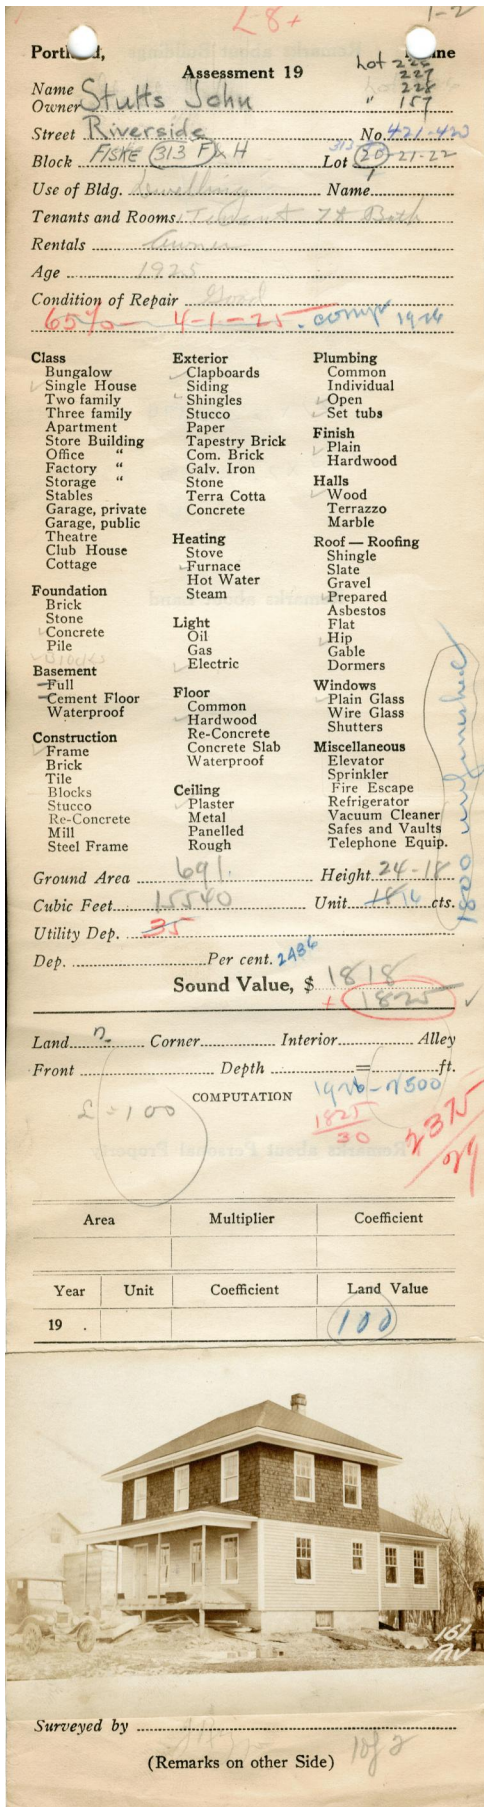 L 8 + 1-2
Portland, Maine
Assessment 19
Lot 226
227
228
" 157
Name
Owner Stutts John
Street Riverside No. 421-423
Block FISKE (313 F) & H Lot 20-21-22
Use of Bldg. Dwelling Name
Tenants and Rooms. 1 Tenant 7 & Bath
Rentals Owner
Age 1925
Condition of Repair Good
65% — 4-1-25. comp 1926
Class
Bungalow
Single House
Two family
Three family
Apartment
Store Building
Office "
Factory "
Storage "
Stables
Garage, private
Garage, public
Theatre
Club House
Cottage
Foundation
Brick
Stone
Concrete
Pile
Blocks
Basement
Full
Cement Floor
Waterproof
Construction
Frame
Brick
Tile
Blocks
Stucco
Re-Concrete
Mill
Steel Frame
Exterior
Clapboards
Siding
Shingles
Stucco
Paper
Tapestry Brick
Com. Brick
Galv. Iron
Stone
Terra Cotta
Concrete
Heating
Stove
Furnace
Hot Water
Steam
Light
Oil
Gas
Electric
Floor
Common
Hardwood
Re-Concrete
Concrete Slab
Waterproof
Ceiling
Plaster
Metal
Panelled
Rough
Plumbing
Common
Individual
Open
Set tubs
Finish
Plain
Hardwood
Halls
Wood
Terrazzo
Marble
Roof — Roofing
Shingle
Slate
Gravel
Prepared
Asbestos
Flat
Hip
Gable
Dormers
Windows
Plain Glass
Wire Glass
Shutters
Miscellaneous
Elevator
Sprinkler
Fire Escape
Refrigerator
Vacuum Cleaner
Safes and Vaults
Telephone Equip.
1800 unfinished
Ground Area 691. Height 24-18
Cubic Feet 15540 Unit 18 16 cts.
Utility Dep. 35
Dep. Per cent. 2486
Sound Value, $ 1818
+ 1825
Land Corner Interior Alley
Front Depth = ft.
COMPUTATION 1926-2500
£ = 100
1825
30
2375
29
Area Multiplier Coefficient
Year Unit Coefficient Land Value
19 . 100
161
Surveyed by
(Remarks on other Side) 1 of 2